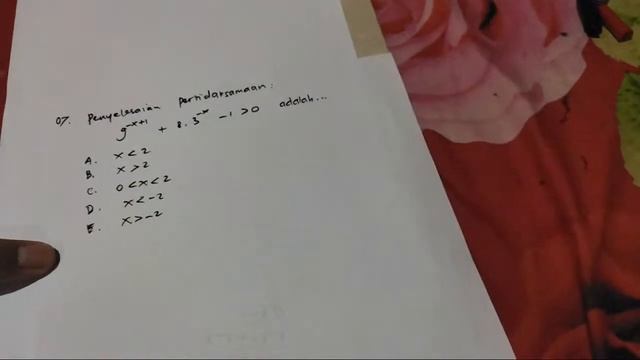 07. Penyelesaian pertidaksamaan:
9⁻ˣ⁺¹ + 8. 3⁻ˣ - 1 > 0 adalah...
A. x < 2
B. x > 2
C. 0 < x < 2
D. x < -2
E. x > -2